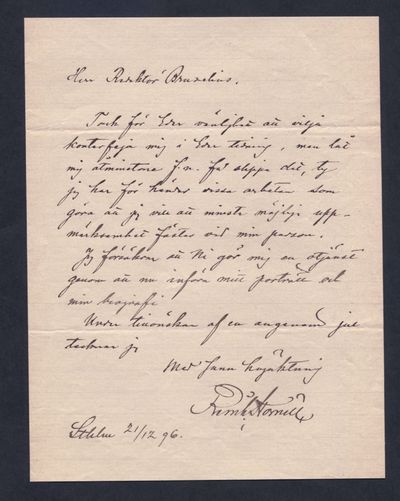 Herr Redaktör Bruzelius.
Tack för Eder vänlighet att vilja
konterfeja mig i Eder tidning, men låt
mig åtminstone f.n. få slippa det, ty
jag har för händer vissa arbeten som
göra att jag vill att minsta möjliga upp-
märksamhet fästes vid min person.
Jag försäkrar att Ni gör mig en otjänst
genom att nu införa mitt porträtt och
min biografi
Under tillönskan af en angenäm jul
tecknar jag
Med sann högaktning
Sthlm 21/12 96.